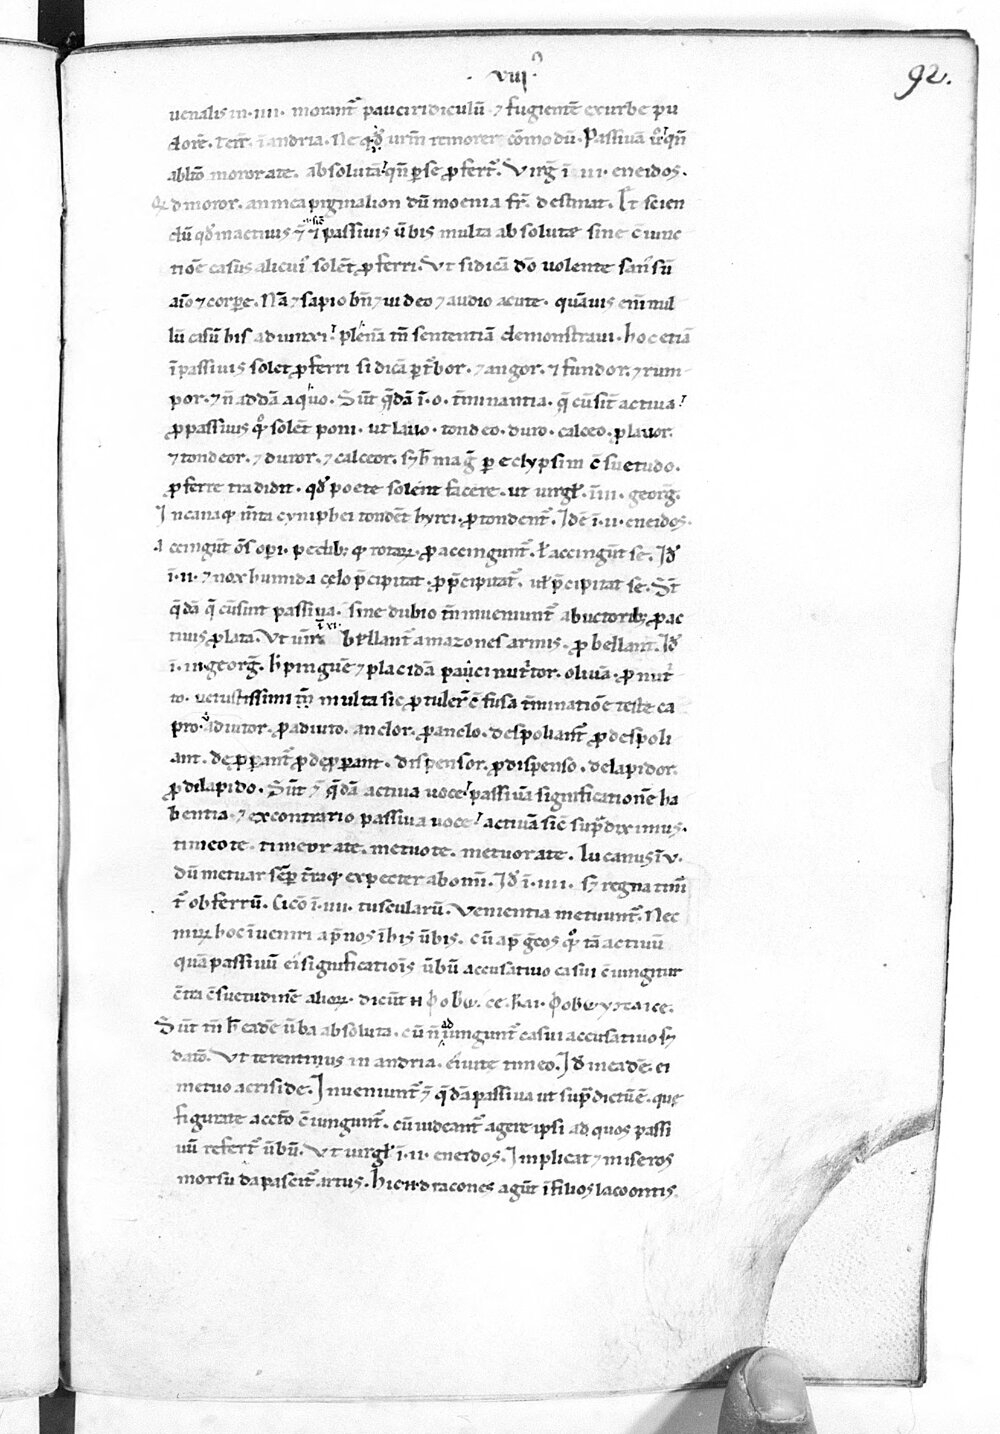 92.
· viii ·
uenalis in .iiii. morant᷑ pauci ridiculũ ⁊ fugientẽ ex urbe pu
dorẽ. Terẽ. ĩ andria. Ne q̃d urĩn remorer cõmodũ. Passiua uº qñ
abltõ mororate. absolutã qñ ꝑse ꝓfert᷑. Virg̃ ĩ .iii. eneidos.
Qd moror. an mea pigmalion dũ moenia fr̃. destinat. Et scien
dũ qd̃ in actiuis ⁊ ĩ passiuis ũbis multa absolute sine cõiunc
tiõe casus alicui᷒ solẽt ꝓferri. Ut si dicã dõ uolente san᷒ sũ
aĩo ⁊ corpe. Nã ⁊ sapio bñ ⁊ uideo ⁊ audio acute. quãuis em̃ nul
lũ casũ his adiunxi plenã tñ sententiã demonstraui. hoc etiã
ĩ passiuis solet ꝓferri si dicã ꝑt᷑bor. ⁊ angor. ⁊ fundor. ⁊ rum
por. ⁊ ñ addã a quo. Sũt q̃dã ĩ .o. t̃minantia. q̃ cũ sint activa
ꝓ passiuis qº solẽt poni. ut lauo. tondeo. duro. calceo. ꝓ lauor.
⁊ tondeor. ⁊ duror. ⁊ calceor. s; h̃ mag̃ ꝑ eclypsim cõsuetudo.
ꝓferre tradidit. qd̃ poete solent facere. ut uirgł. ĩ .iii. georg̃.
Incanaq; m̃ta cyniphei tondẽt hyrci. ꝓ tondent᷑. Idẽ ĩ .ii. eneidos.
Accingũt õs opi. pedib; q; rotaꝝ. ꝓ accingunt᷑. ł accingũt se. Id̃
ĩ .ii. ⁊ nox humida cęlo p̃cipitat. ꝓ p̃cipitat᷑. uł p̃cipitat se. St̃
q̃dã q̃ cũ sint passiua. sine dubio tñ inueniunt᷑ ab uctorib; ꝓ ac
tiuis ꝓlata. Ut uirg̃ ĩ .xi. bellant᷑ amazones armis. ꝓ bellant. Id̃
ĩ .iii. georg̃. h̃ pinguẽ ⁊ placidã pauci nutritor. oliuã. ꝓ nutri
to. uetustissimi tñ multa sic ꝓtuler̃ cõfusa t̃minatiõe teste ca
pro. adiutor. ꝓ adiuto. anclor. ꝓ anclo. despoliant᷑ ꝓ despoli
ant. deꝓꝑant᷑ ꝓ deꝓꝑant. dispensor. ꝓ dispenso. delapidor.
ꝓ dilapido. Sũt ⁊ q̃dã actiua uoce passiuã significationẽ ha
bentia. ⁊ ex contrario passiua uoce actiuã sič sup̃ diximus.
timeo te. timeor a te. metuo te. metuor a te. Lucanus ĩ .v.
dũ metuar semꝑ t̃raq; expecter ab om̃i. Id̃ ĩ .iiii. s; regna tim̃
t᷑ ob ferrũ. Cicõ ĩ .iiii. tuscularũ. Venientia metuunt᷑. Nec
miꝝ hoc ĩueniri ap̃ nos ĩ his ũbis. cũ ap̃ g̃cos qº tã actiuũ
quã passiuũ ei᷒ significatiõis ũbũ accusatiuo casui cõiungitur
cõtra cõsuetudinẽ alioꝝ. dicũt н ϕοβω. ce. ĸai. ϕοβωγмаice.
Sũt tñ h̃ eadẽ ũba absoluta. cũ ñ adiungunt᷑ casui accusatiuo s;
datõ. Ut terentinus in andria. ei᷒ uite timeo. Id̃ in eadẽ. ei
metuo a criside. Inueniunt᷑ ⁊ q̃dã passiua ut sup̃ dictũ ẽ. quę
figurate accõ cõiungunt᷑. cũ uideant᷑ agere ipsi ad quos passi
uũ refert᷑ ũbũ. Ut uirgł ĩ .ii. eneidos. Implicat ⁊ miseros
morsu depascit᷑ artus. Hic .n. dracones agũt ĩ filios lacoontis.